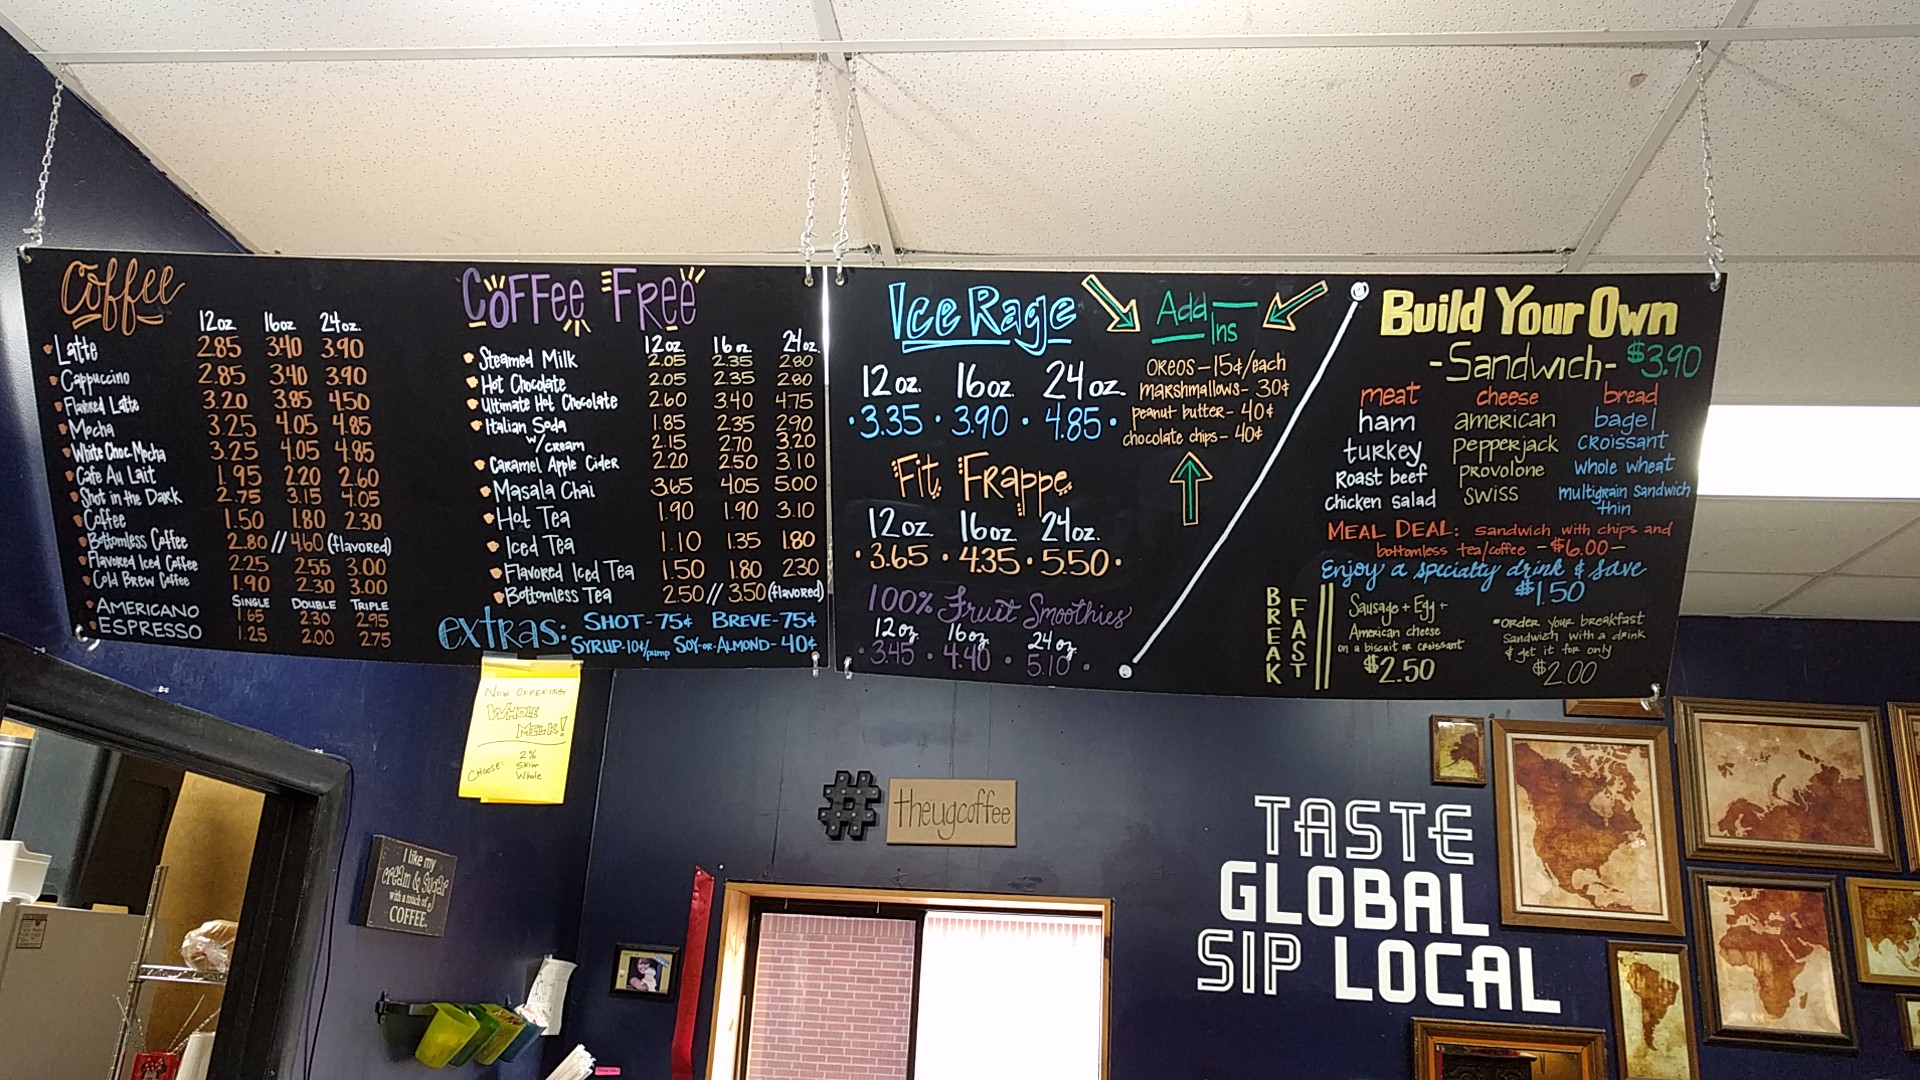 Coffee
12oz. 16oz. 24oz.
Latte 2.85 3.40 3.90
Cappuccino 2.85 3.40 3.90
Flavored Latte 3.20 3.85 4.50
Mocha 3.25 4.05 4.85
White Choc. Mocha 3.25 4.05 4.85
Cafe Au Lait 1.95 2.20 2.60
Shot in the Dark 2.75 3.15 4.05
Coffee 1.50 1.80 2.30
Bottomless Coffee 2.80 // 4.60 (flavored)
Flavored Iced Coffee 2.25 2.55 3.00
Cold Brew Coffee 1.90 2.30 3.00
SINGLE DOUBLE TRIPLE
AMERICANO 1.65 2.30 2.95
ESPRESSO 1.25 2.00 2.75
COFFEE FREE
12oz. 16oz 24oz.
Steamed Milk 2.05 2.35 2.80
Hot Chocolate 2.05 2.35 2.80
Ultimate Hot Chocolate 2.60 3.40 4.75
Italian Soda 1.85 2.35 2.90
w/cream 2.15 2.70 3.20
Caramel Apple Cider 2.20 2.50 3.10
Masala Chai 3.65 4.05 5.00
Hot Tea 1.90 1.90 3.10
Iced Tea 1.10 1.35 1.80
Flavored Iced Tea 1.50 1.80 2.30
Bottomless Tea 2.50 // 3.50 (flavored)
extras: SHOT-75¢ BREVE-75¢
SYRUP-10¢/pump SOY-OR-ALMOND-40¢
Ice Rage
12oz. 16oz. 24oz.
·3.35 · 3.90 · 4.85·
Add Ins
OREOS-15¢/each
marshmallows-30¢
peanut butter-40¢
chocolate chips-40¢
Fit Frappe
12oz. 16oz. 24oz.
·3.65 · 4.35 · 5.50·
100% Fruit Smoothies
12oz. 16oz. 24oz.
·3.45 · 4.40 · 5.10·
Build Your Own
-Sandwich- $3.90
meat cheese bread
ham american bagel
turkey pepperjack croissant
Roast beef provolone whole wheat
chicken salad swiss multigrain sandwich
thin
MEAL DEAL: sandwich with chips and
bottomless tea/coffee -$6.00-
Enjoy a specialty drink & save
$1.50
BREAK
FAST
Sausage + Egg +
American cheese
on a biscuit or croissant
$2.50
*Order your breakfast
sandwich with a drink
& get it for only
$2.00
NOW OFFERING
WHOLE
MILK!
CHOOSE: 2%
Skim
Whole
# theugcoffee
I like my
cream & sugar
with a touch of
COFFEE.
TASTE
GLOBAL
SIP LOCAL